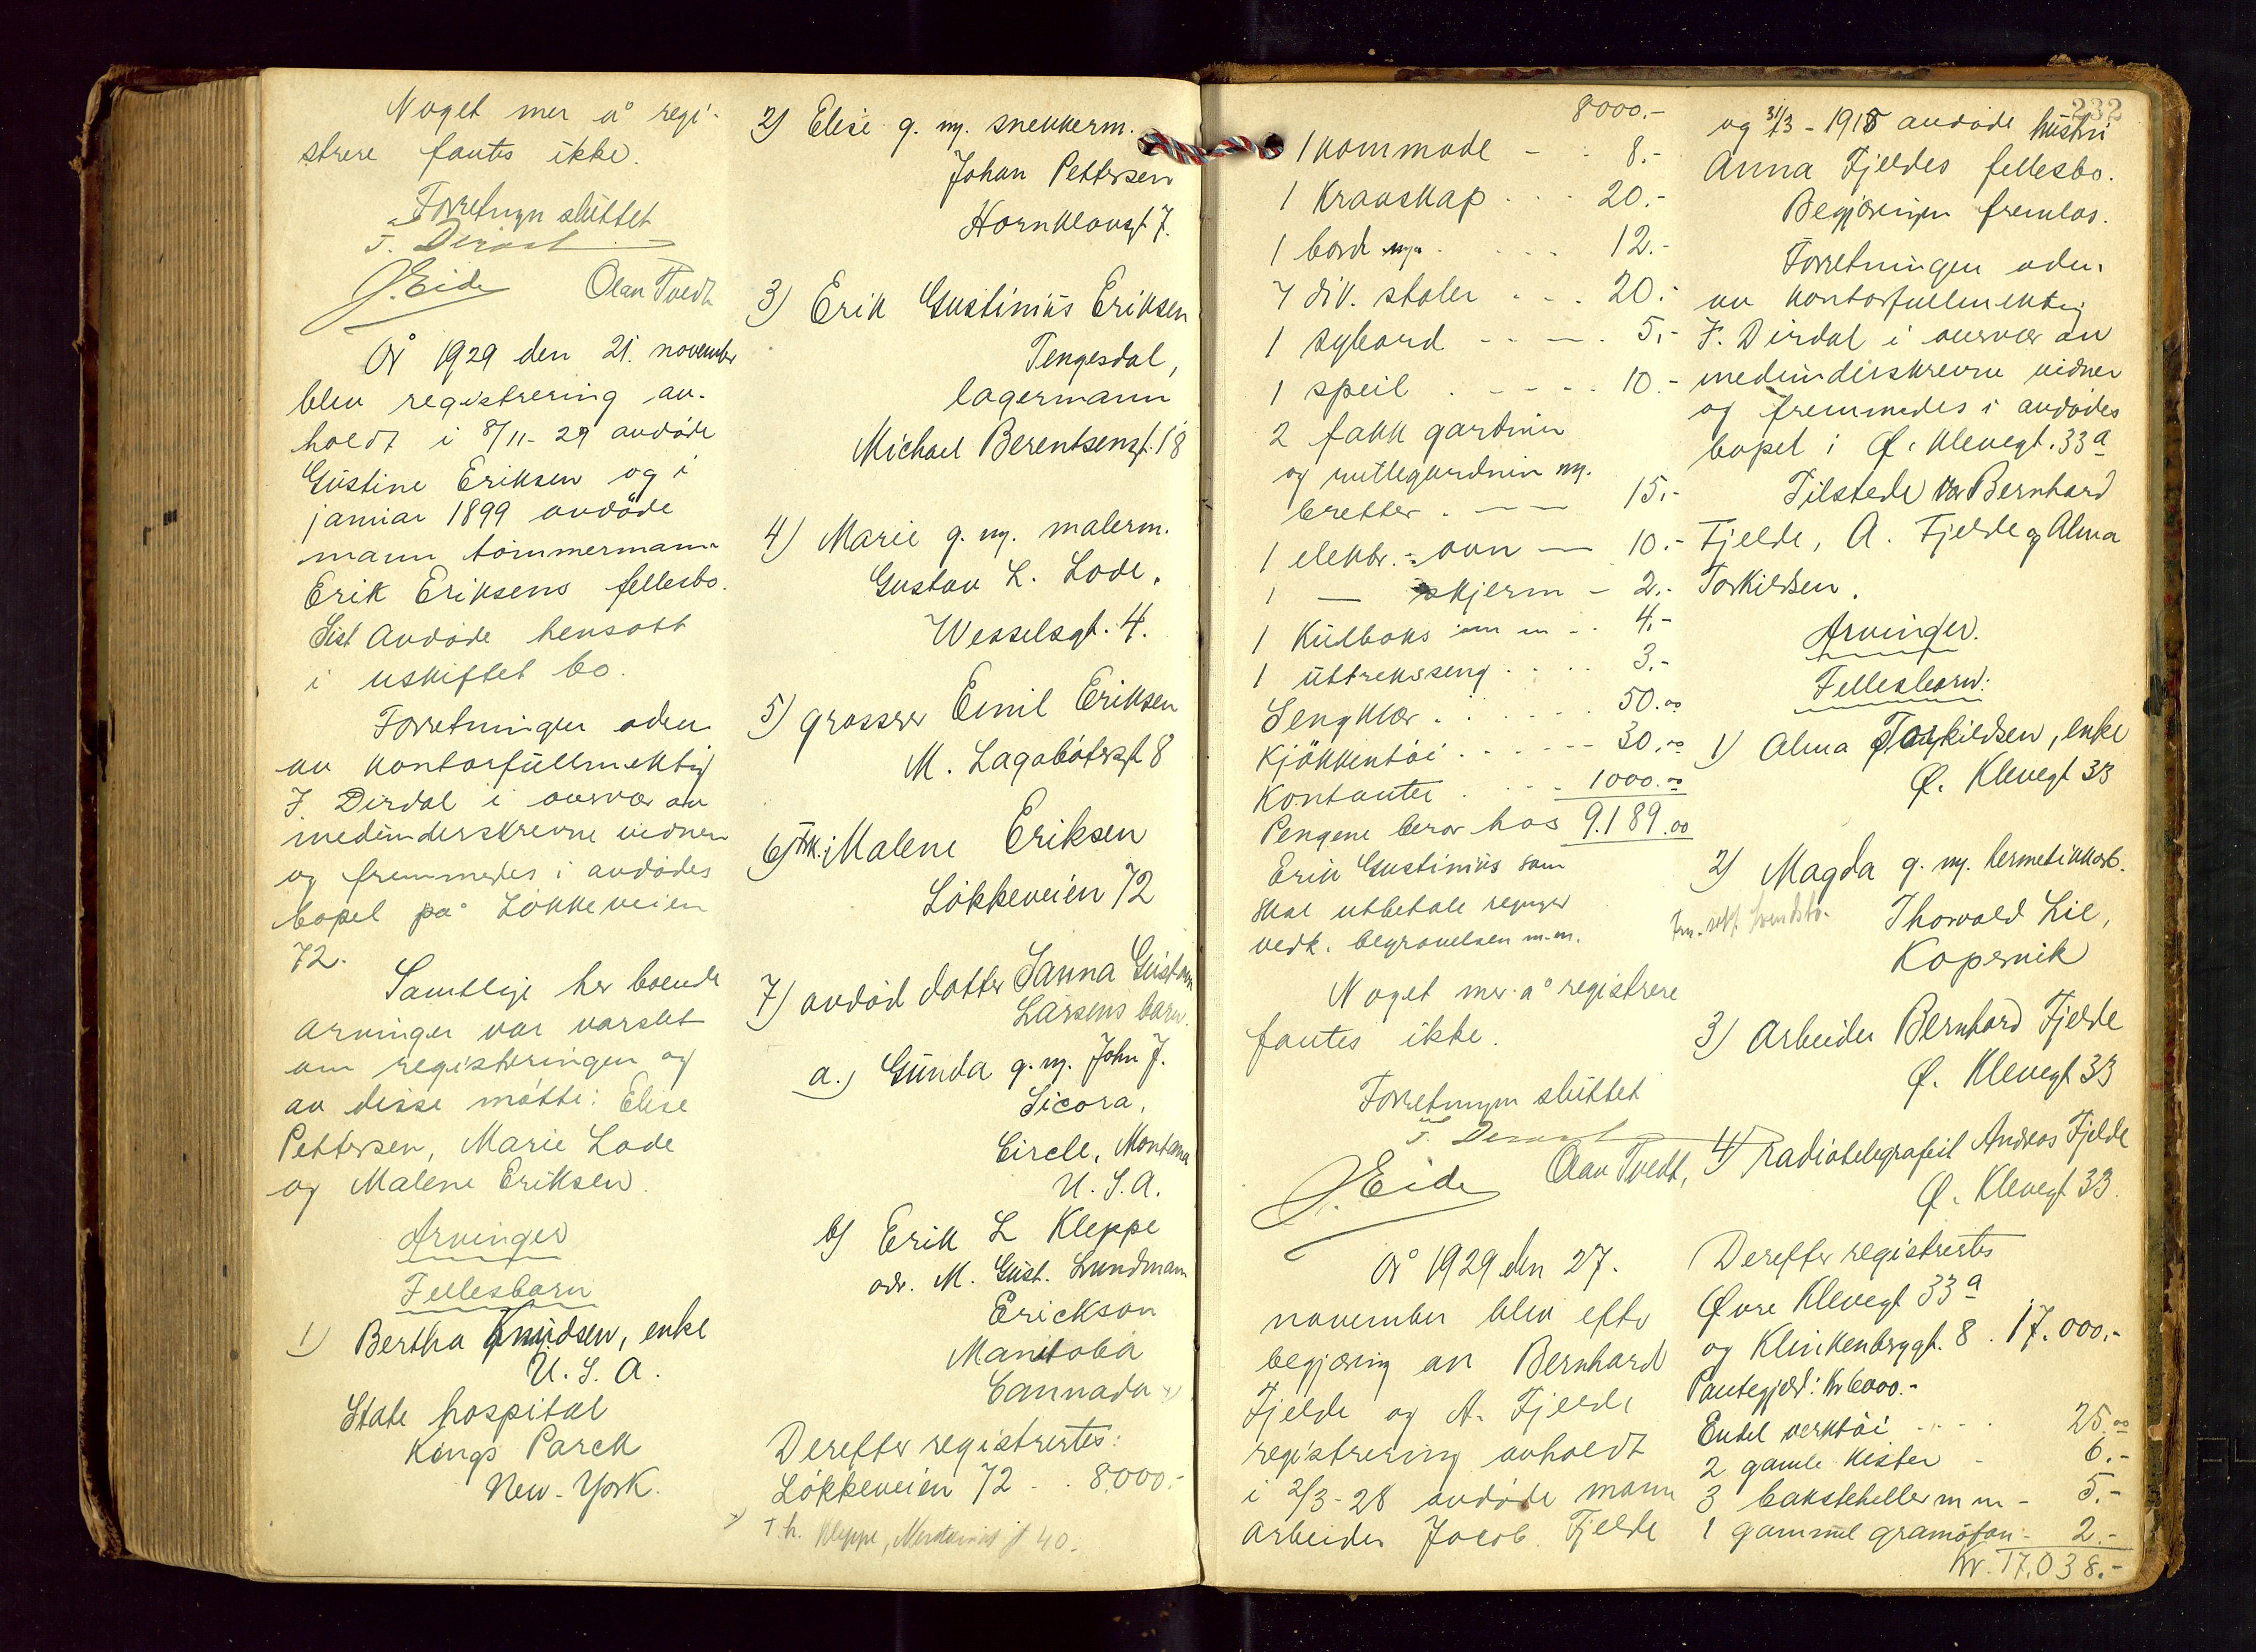 Noget mer å regi-
strere fantes ikke.
Forretningen sluttet
J. Dirdal
J. Eide Olav Tvedt
År 1929 den 21. november
blev registrering av-
holdt i 8/11-29 avdøde
Gustine Eriksen og i
januar 1899 avdøde
mann tømmermann
Erik Eriksens fellesbo.
Sist avdøde hensatt
i uskiftet bo.
Forretningen
av kontorfullmektig
J. Dirdal i overvær av
medunderskrevne vidner
og fremmedes i avdødes
bopel på Løkkeveien
72.
Samtlige her boende
arvinger var varslet
om registreringen og
av disse møtte: Elise
Pettersen, Marie Lode
og Malene Eriksen.
Arvinger
Fellesbarn
1) Bertha Knudsen, enke
U. S. A.
State hospital
Kings Parck
New-York.
2) Elise g. m. snekkerm.
Johan Pettersen
Hornklovsgt 7.
3) Erik Gustinius Eriksen
Tengesdal,
lagermann
Michael Berentsensgt. 18
4) Marie g. m. malerm.
Gustav L. Lode.
Wesselsgt. 4.
5) grosserer Emil Eriksen
M. Lagabøtersgt 8
6) frk. Malene Eriksen
Løkkeveien 72
7) avdød datter Sanna Gustava
Larsens barn.
a.) Gunda g. m. John J.
Sicora,
Circle, Montana
U. S. A.
b) Erik L Kleppe
adr. M. Gust. Lundmann
Erickson
Manitoba
Cannada x)
Derefter registrertes:
Løkkeveien 72 . . 8000.-
x) T. h. Kleppe, 40.
8000.-
1 kommode - - 8.-
1 Kravskap . . . 20.-
1 bord . . . . 12.-
7 div. stoler . . . 20.-
1 sybord - - - . 5.-
1 speil . - - - . 10.-
2 fakk gardiner
og rullegardiner m.
bretter . - - 15.-
1 elektr. ovn - 10.-
1 — skjerm - 2.-
1 Kulboks m m - . 4.-
1 uttreksseng . . . . 3.-
Sengklær . . . . . . 50.00
Kjøkkentøi . . . . - - 30.00
Kontanter . . . . 1000.00
Pengene beror hos 9.189.00
Erik Gustinius som
skal utbetale regninger
vedk. begravelsen m.m.
Noget mer å registrere
fantes ikke.
Forretningen sluttet
J. Dirdal
J. Eide Olav Tvedt,
År 1929 den 27.
november blev efter
begjæring av Bernhard
Fjelde og A. Fjelde
registrering avholdt
i 2/3-28 avdøde mann
arbeider Jacob Fjelde
232
og 31/3 - 1915 avdøde hustru
Anna Fjeldes fellesbo.
Begjæringen fremlas.
Forretningen
av kontorfullmektig
J. Dirdal i overvær av
medunderskrevne vidner
og fremmedes i avdødes
bopel i Ø. Klevegt. 33a
Tilstede var Bernhard
Fjelde, A. Fjelde og Alma
Torkildsen.
Arvinger.
Fellesbarn:
1) Alma Torkildsen, enke
Ø. Klevegt 33
2) Magda g. m. hermetikkarb.
Thorvald Lie,
Kopervik
3) Arbeider Bernhard Fjelde
Ø. Klevegt 33
4) radiotelegrafist Andreas Fjelde
Ø. Klevegt 33.
Derefter registrertes
Øvre Klevegt 33a
og Klinkenbryggt. 8 . 17.000.-
Pantegjæld: Kr 6000.-
Endel verktøi . . - . 25.00
2 gamle kister - 6.-
3 baksteheller m m - 5.-
1 gammel gramofon - 2.-
Kr. 17.038.-